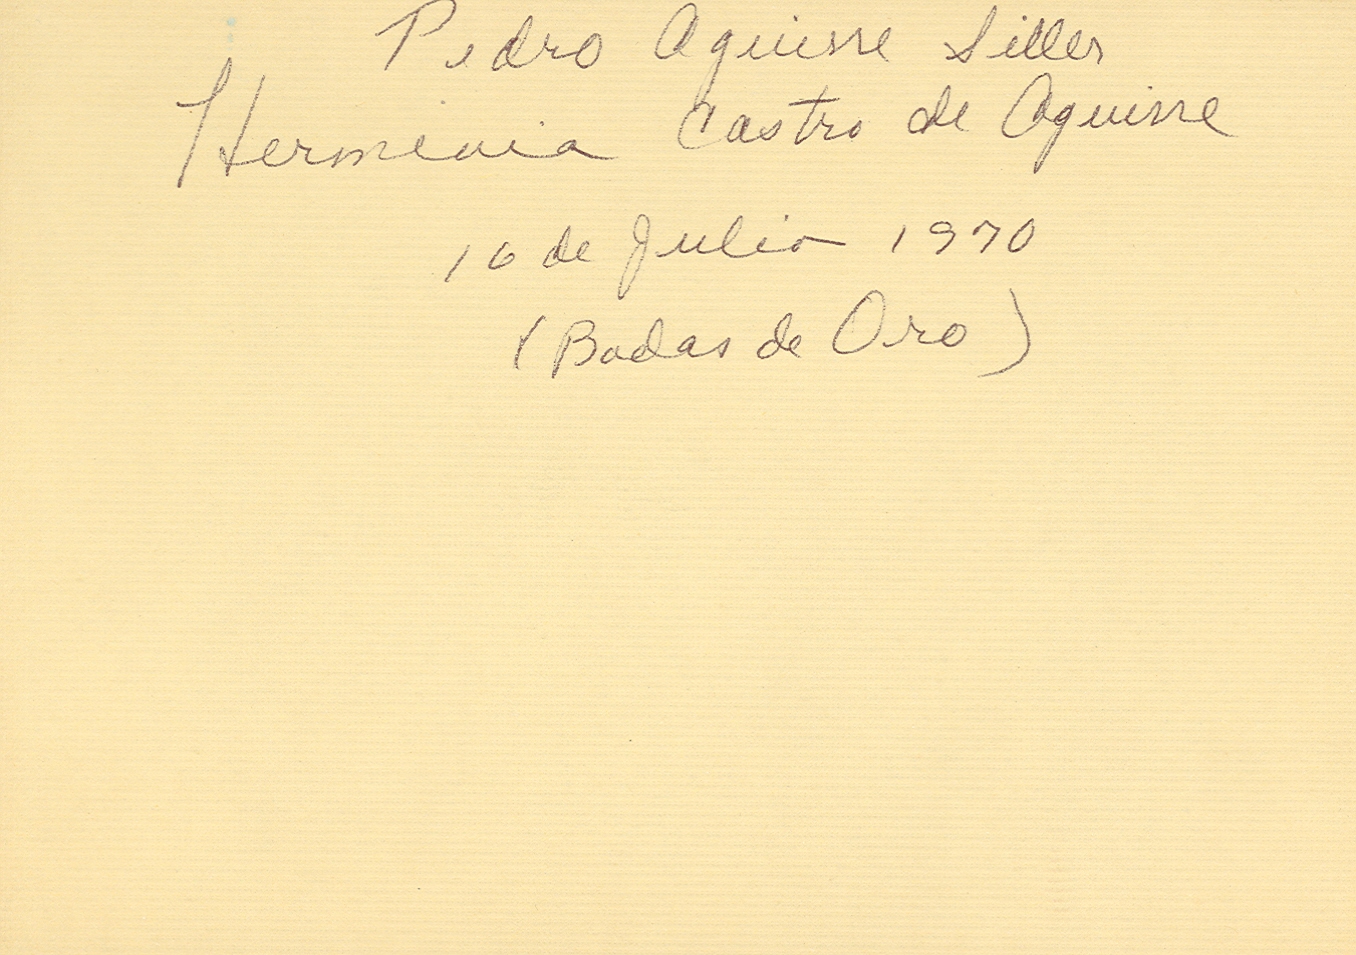 Pedro Aguirre Siller
Hermenia Castro de Aguirre
16 de Julio 1970
(Bodas de Oro)